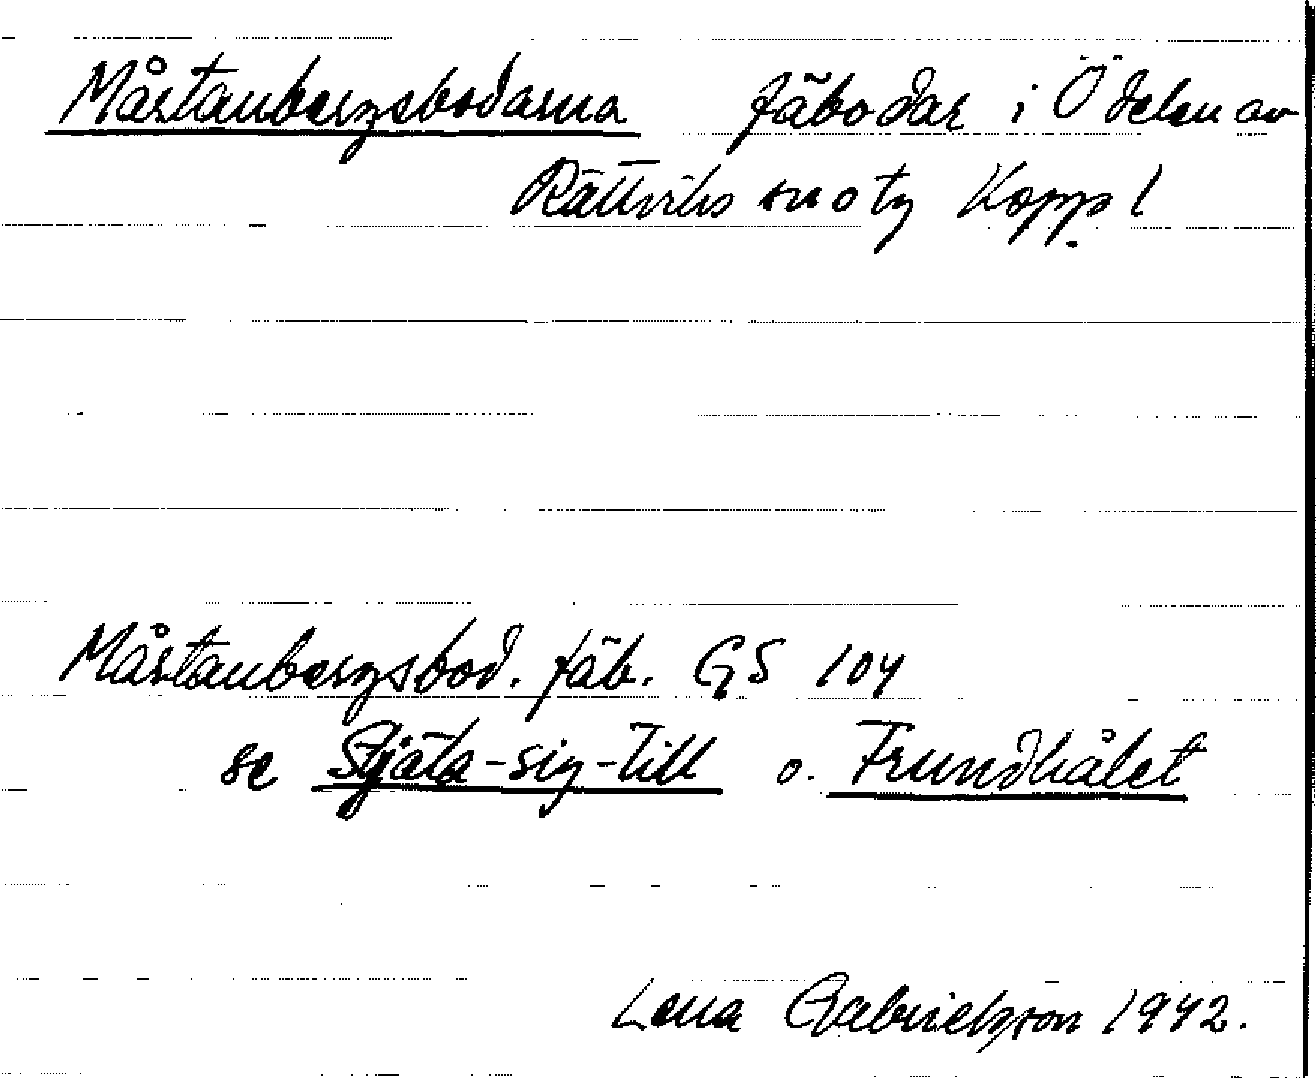 Mårtanbergsbodarna fäbodar i Ö delen av
Rättviks sn o tg Kopp l
Mårtanbergsbod. fäb. GS 104
se Stjäla-sig-till o. Trundhålet
Lena Gabrielsson 1942.